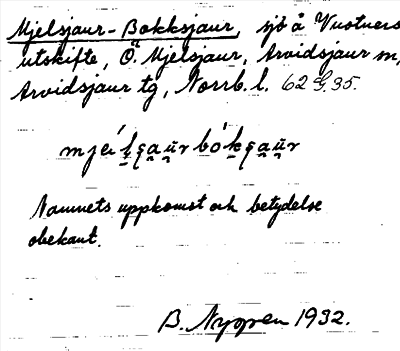 Mjelsjaur-Bokksjaur, sjö å Vuotners
utskifte, Ö. Mjelsjaur, Arvidsjaur sn,
Arvidsjaur tg, Norrb. l. 62 G 35.
Namnets uppkomst och betydelse
obekant.
B. Nygren 1932.